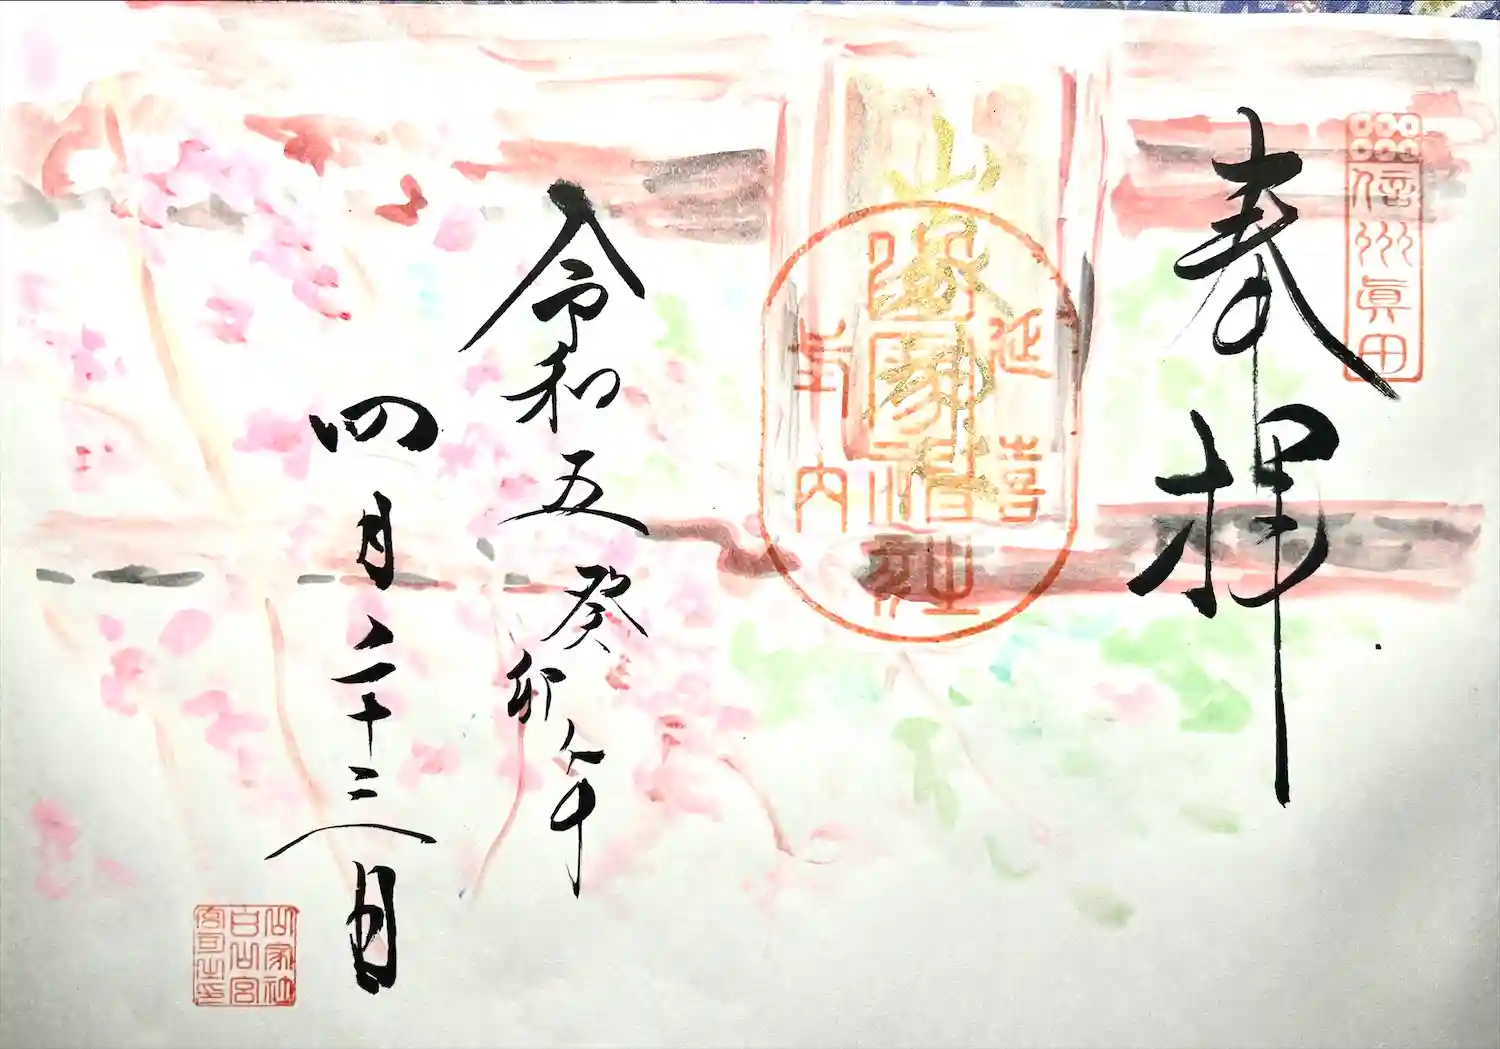 信州眞田
奉拝
山家神社
延喜
山家神社
式内
令和五癸卯年
四月二十三日
山家社
白山宮
宮司之印